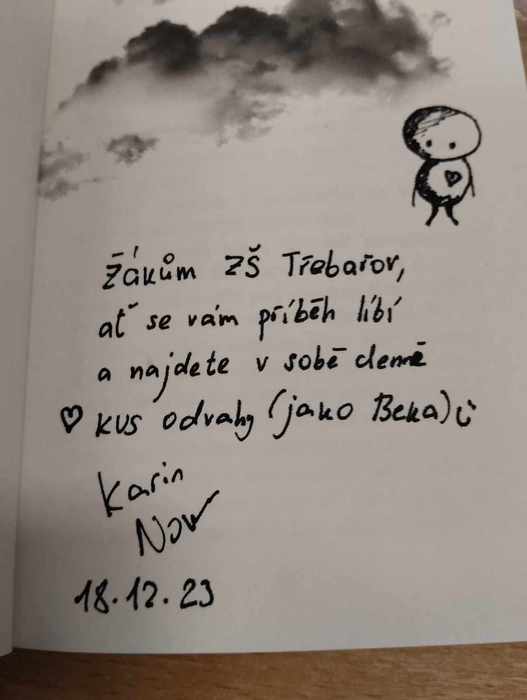 Žákům ZŠ Třebařov,
ať se vám příběh líbí
a najdete v sobě denně
kus odvahy (jako Beka)
Karin
Now
18.12.23